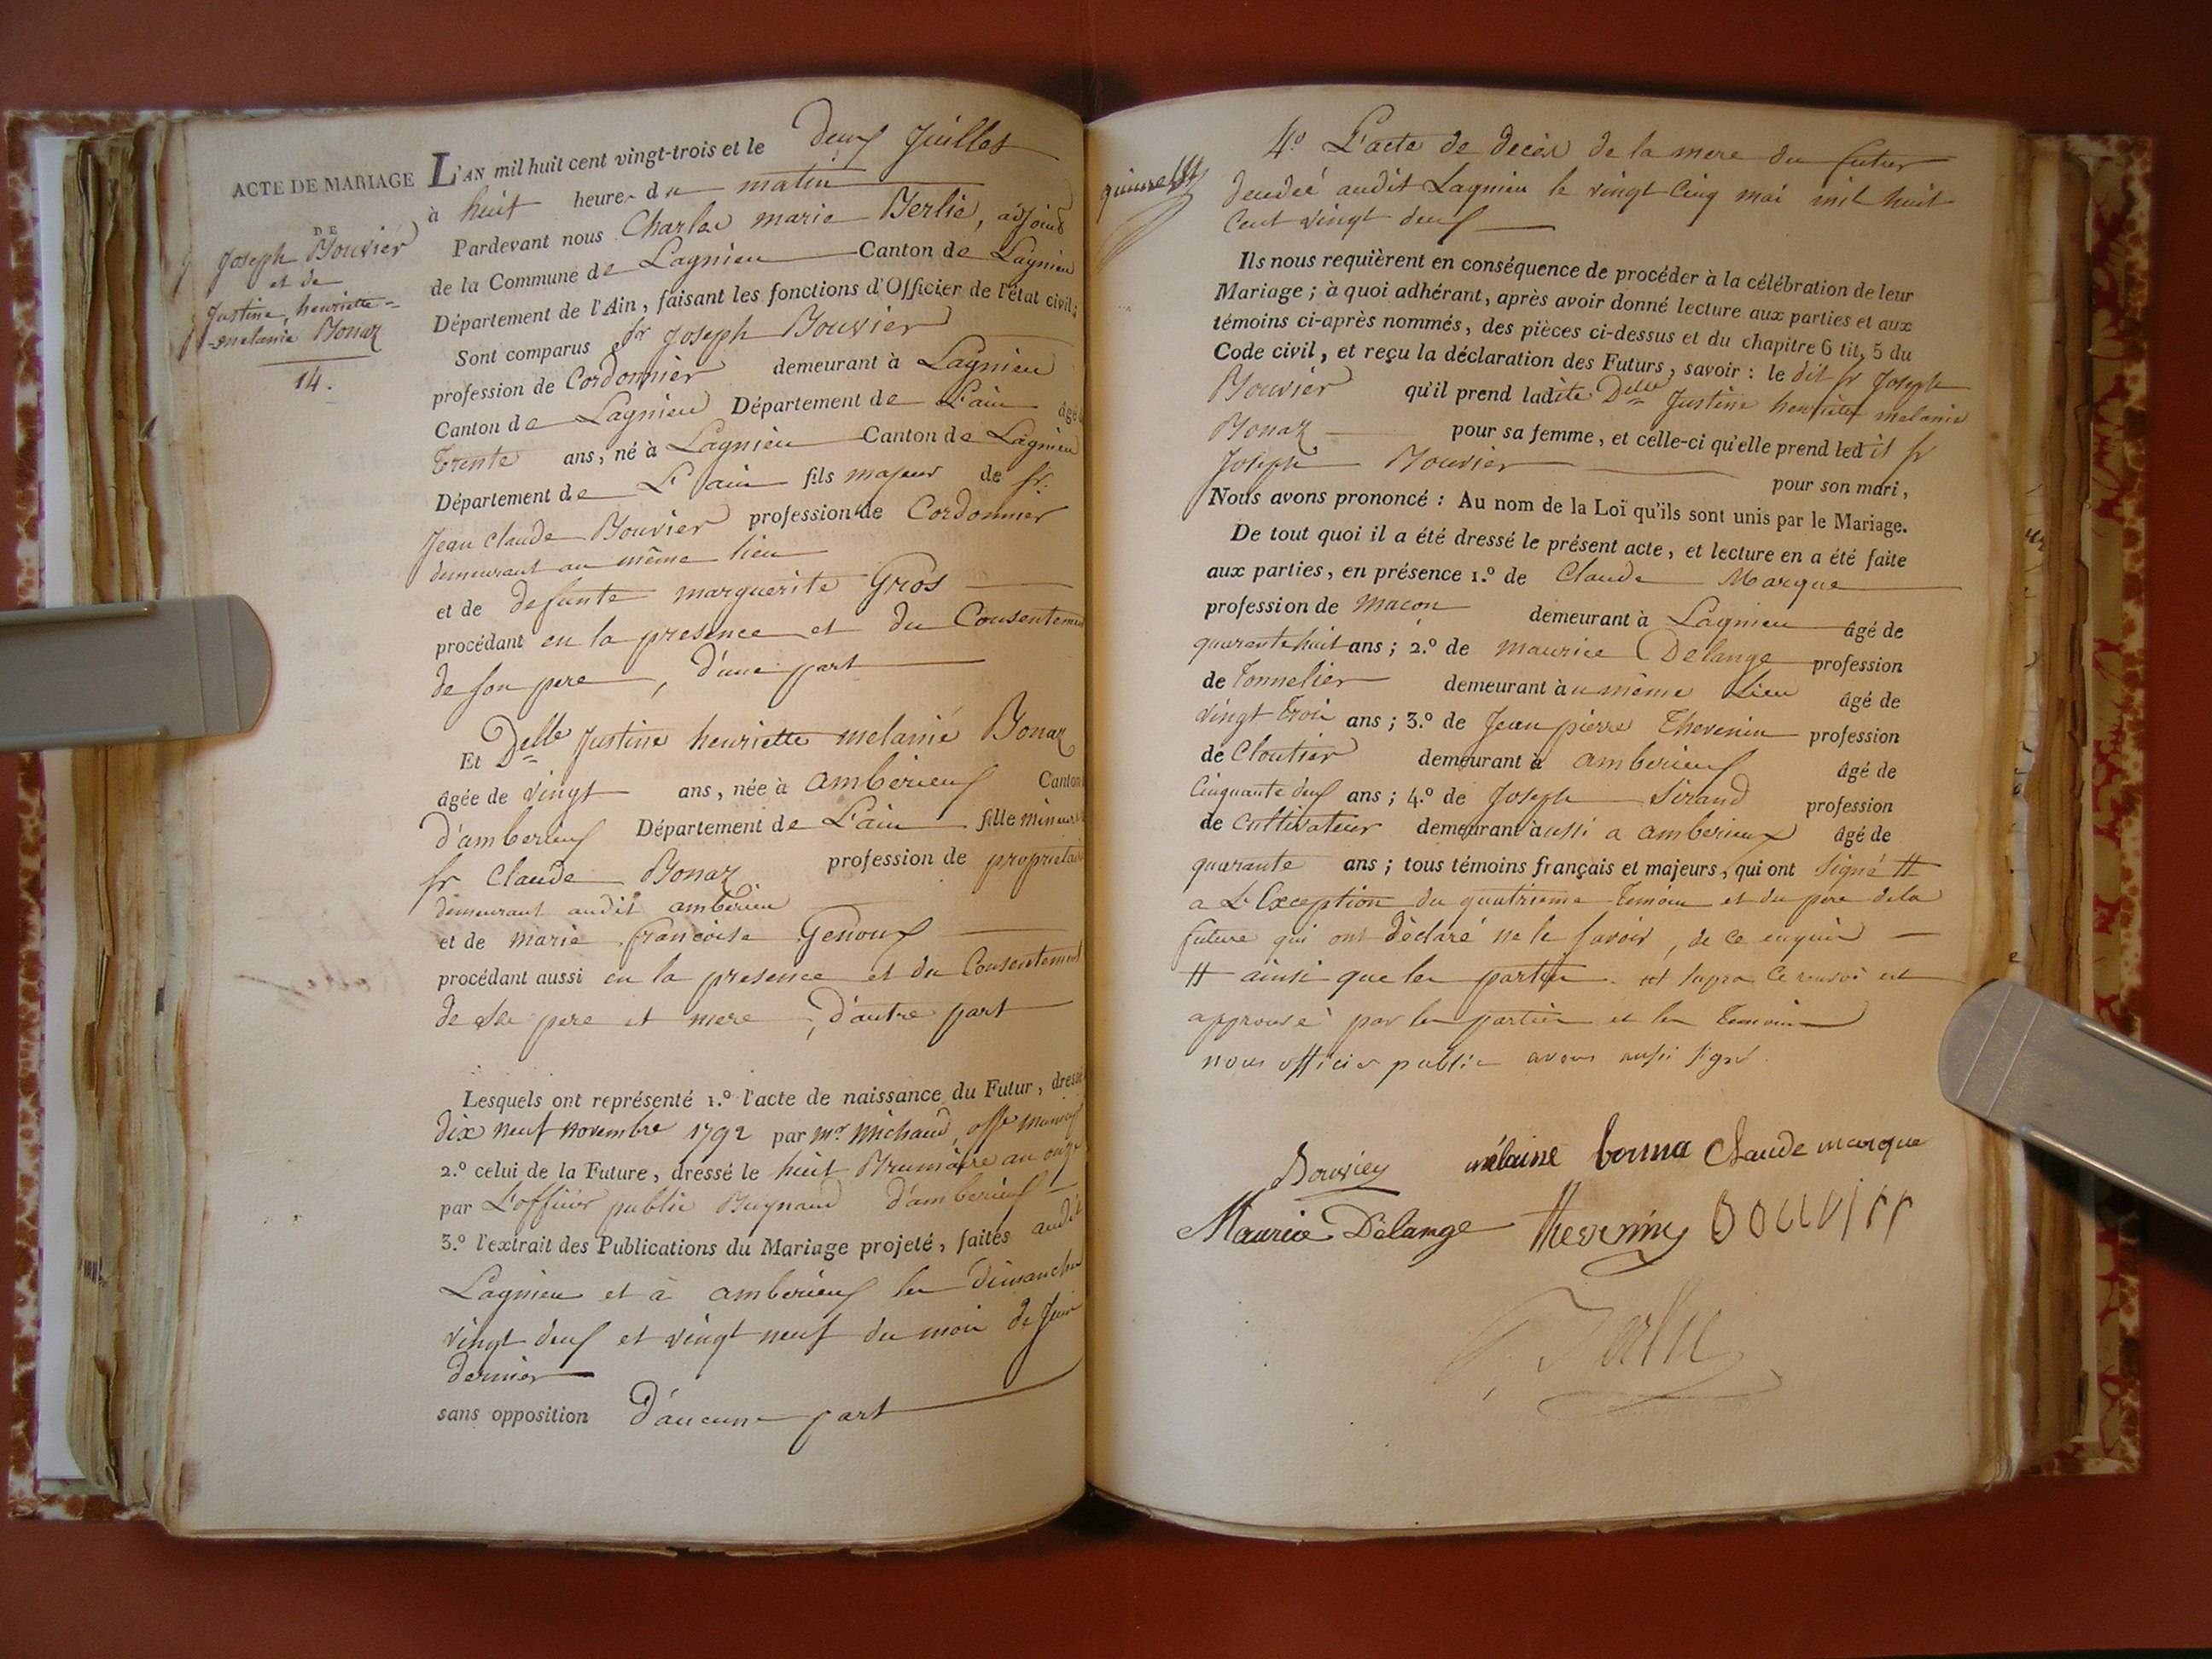 ACTE DE MARIAGE
DE
Joseph Bouvier
et de
Justine, henriette-
melanie Bonaz
14.
L'AN mil huit cent vingt-trois et le deux Juillet
à huit heures du matin
Pardevant nous Charles marie Berlie, adjoint
de la Commune de Lagnieu Canton de Lagnieu
Département de l'Ain, faisant les fonctions d'Officier de l'état civil;
Sont comparus Sr Joseph Bouvier
profession de Cordonnier demeurant à Lagnieu
Canton de Lagnieu Département de L'ain âgé d
Trente ans, né à Lagnieu Canton de Lagnieu
Département de L'ain fils majeur de Sr.
Jean Claude Bouvier profession de Cordonnier
demeurant au même lieu
et de defunte marguerite Gros
procédant en la presence et du Consentement
de son pere, d'une part
Et Delle Justine henriette melanie Bonaz
âgée de vingt ans, née à amberieux Canton
d'amberieux Département de L'ain fille mineure
sr Claude Bonaz profession de proprietaire
demeurant audit amberieu
et de marie françoise Genoux
procédant aussi en la presence et du Consentement
de ses pere et mere, d'autre part
Lesquels ont représenté 1.º l'acte de naissance du Futur, dressé
dix neuf novembre 1792 par mr. Michaud, off. munic
2.º celui de la Future, dressé le huit Brumaire an onze
par L'officier public Bugnaud d'amberieux
3.º l'extrait des Publications du Mariage projeté, faites audit
Lagnieu et à amberieux les dimanches
vingt deux et vingt neuf du mois de Juin
dernier
sans opposition d'aucune part
4.º L'acte de décès de la mere du futur
décédée audit Lagnieu le vingt Cinq mai mil huit
Cent vingt deux
Ils nous requièrent en conséquence de procéder à la célébration de leur
Mariage; à quoi adhérant, après avoir donné lecture aux parties et aux
témoins ci-après nommés, des pièces ci-dessus et du chapitre 6 tit. 5 du
Code civil, et reçu la déclaration des Futurs, savoir: le dit sr Joseph
Bouvier qu'il prend ladite Delle Justine henriette melanie
Bonaz pour sa femme, et celle-ci qu'elle prend ledit sr
Joseph Bouvier pour son mari,
Nous avons prononcé: Au nom de la Loi qu'ils sont unis par le Mariage.
De tout quoi il a été dressé le présent acte, et lecture en a été faite
aux parties, en présence 1.º de Claude Marque
profession de maçon demeurant à Lagnieu âgé de
quarante huit ans; 2.º de maurice Delange profession
de Tonnelier demeurant au même Lieu âgé de
vingt trois ans; 3.º de Jean pierre Thevenin profession
de Cloutier demeurant à amberieux âgé de
Cinquante deux ans; 4.º de Joseph Sirand profession
de Cultivateur demeurant aussi a amberieux âgé de
quarante ans; tous témoins français et majeurs, qui ont signé #
a L'Exception du quatrieme Temoin et du pere de la
future qui ont déclaré ne le savoir, de ce enquis
# ainsi que les parties ce renvoi est
approuvé par les parties et les Temoins
nous officier public avons aussi signé
Bouvier mélaine bonna Claude marque
Maurice Délange thevenin bouvier
Berlie